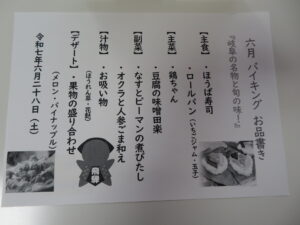 六月 バイキング お品書き
『岐阜の名物と旬の味!』
【主食】
・ほうば寿司
・ロールパン(いちごジャム・玉子)
【主菜】
・鶏ちゃん
・豆腐の味噌田楽
【副菜】
・なすとピーマンの煮びたし
・オクラと人参ごま和え
【汁物】
・お吸い物
(ほうれん草・花麩)
【デザート】
・果物の盛り合わせ
(メロン・パイナップル)
令和七年六月二十八日(土)
飛騨